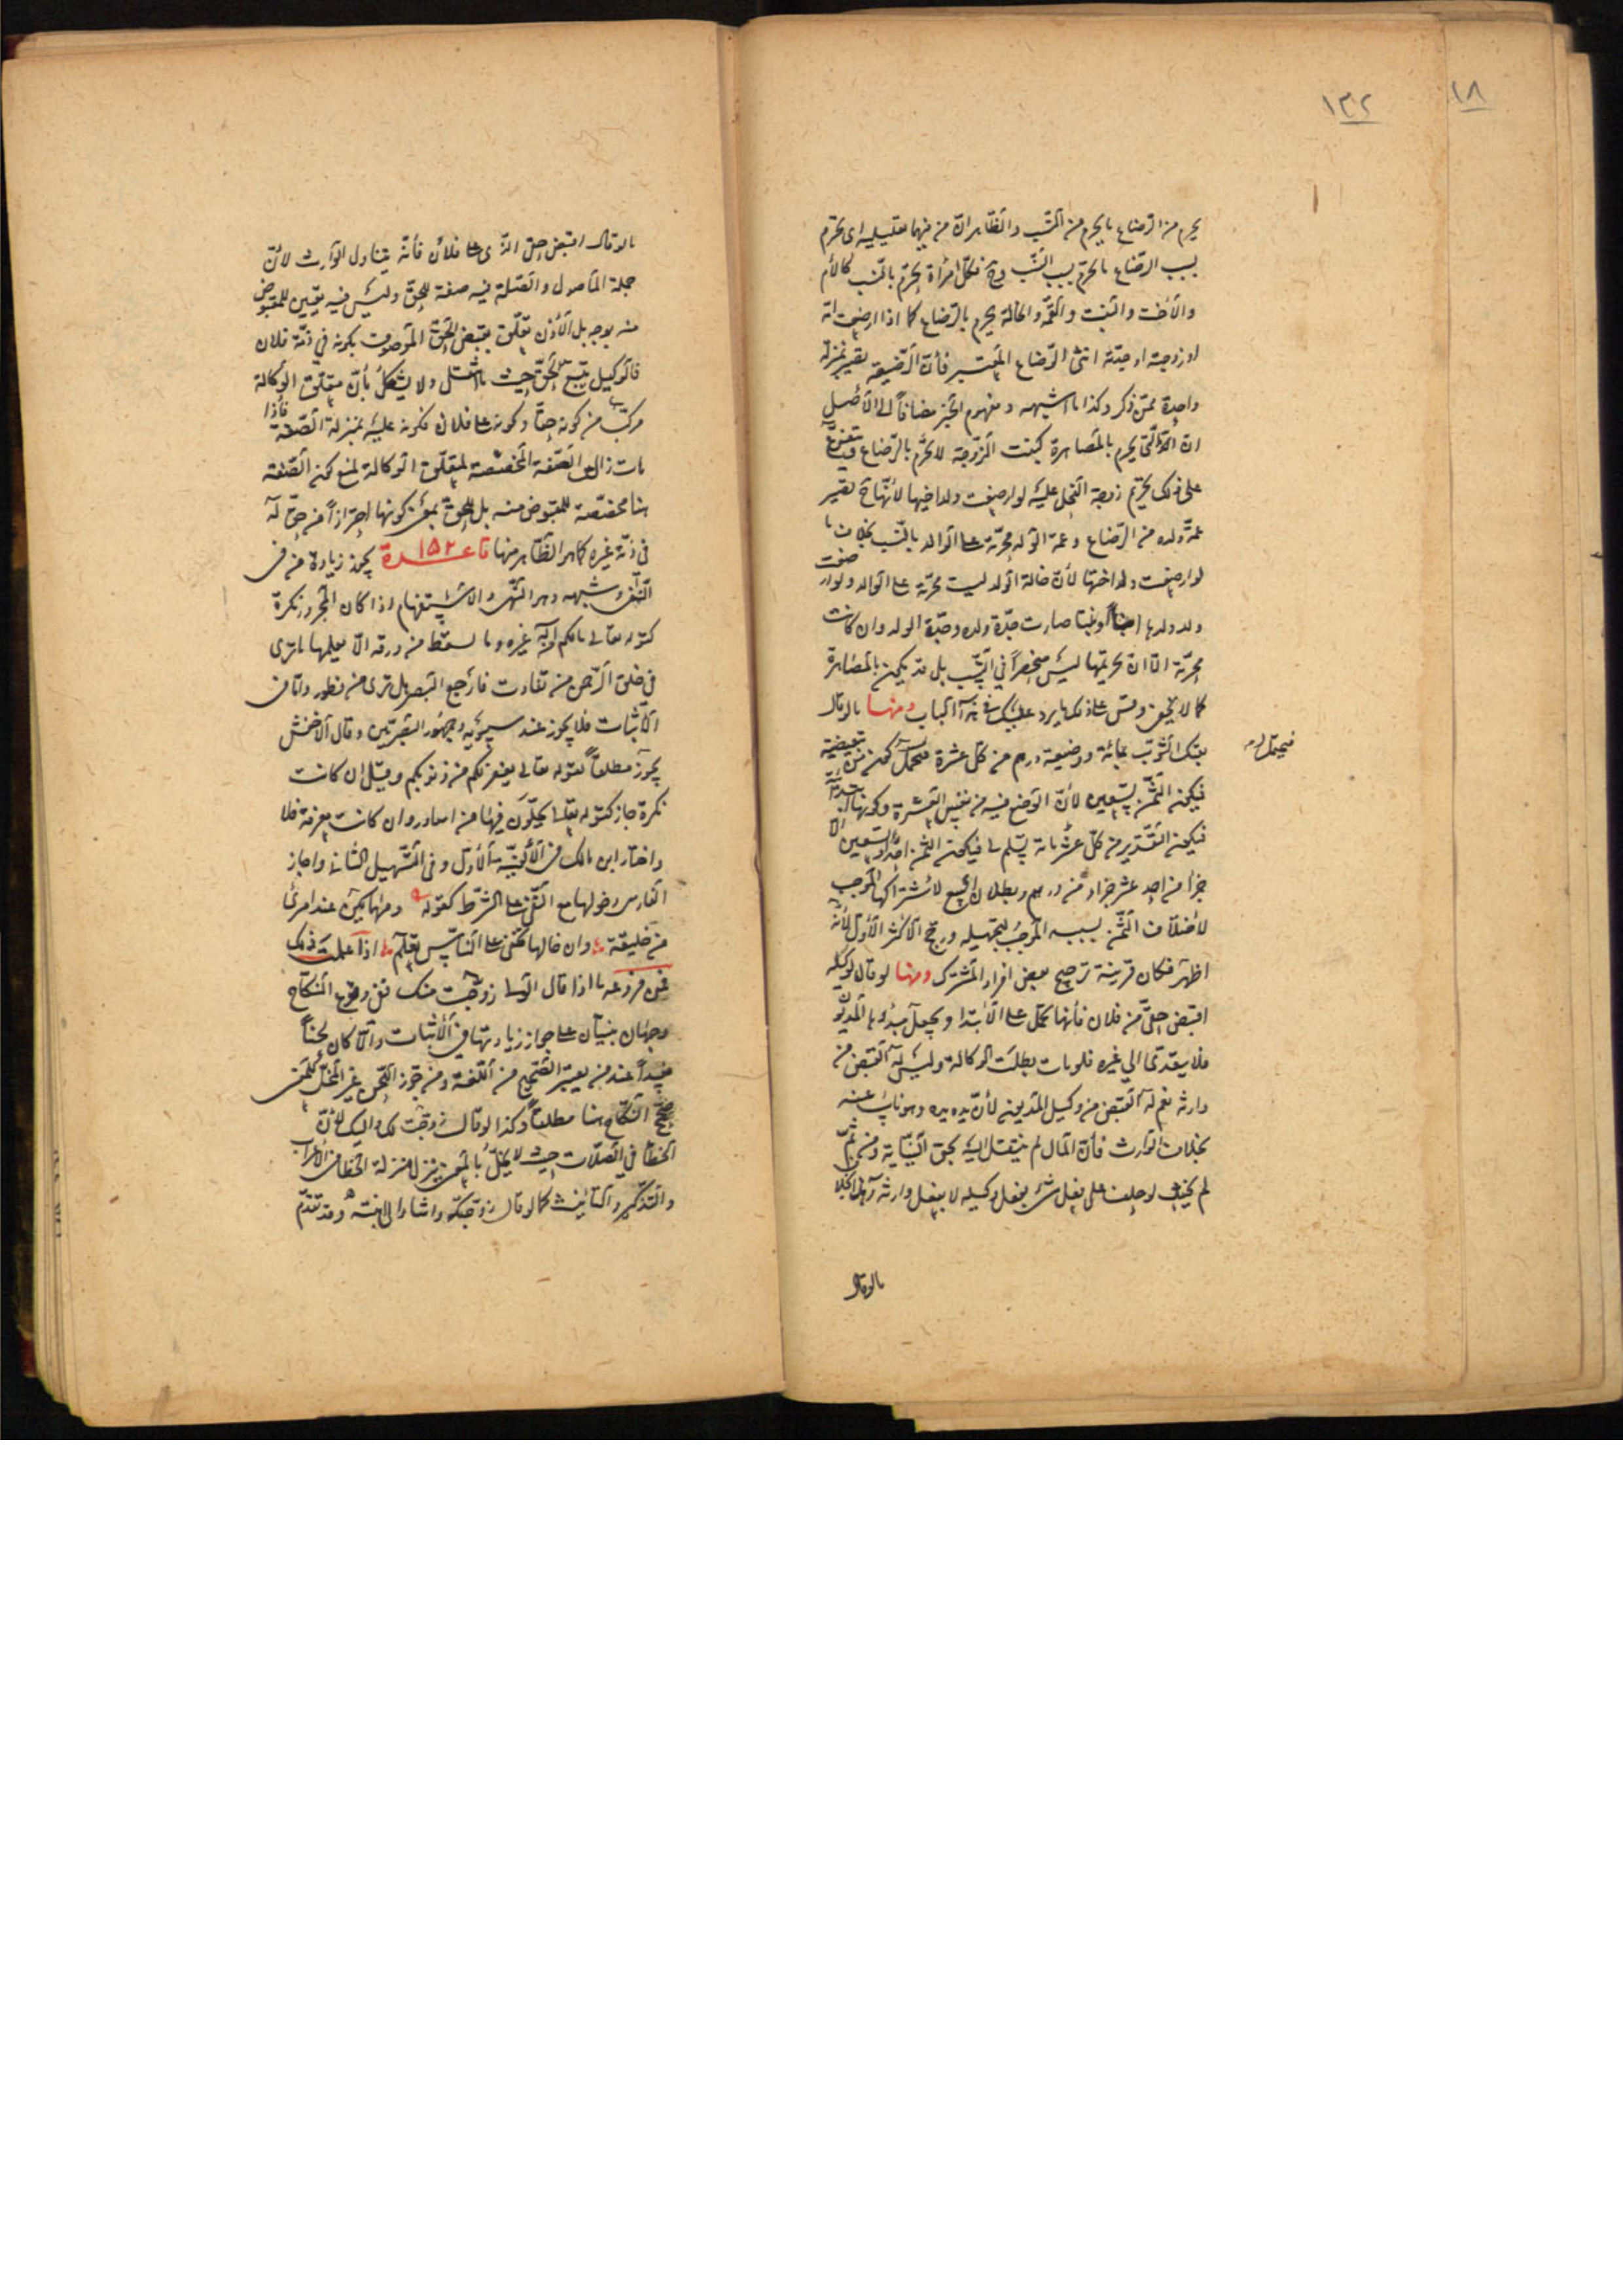 ١٣٢
١٨
يحرم من الرضاع ما يحرم من النسب والظاهر ان من فيهما تعليلية اى يحرم
بسبب الرضاع ما يحرم بسبب النسب وح فكل امرأة تحرم بالنسب كالأم
والأخت والبنت والعمة والخالة يحرم بالرضاع كما اذا ارضعت امه
او زوجته او جدته انثى الرضاع المعتبر فأن الرضيعة تصير بمنزلة
واحدة ممن ذكر وكذا ما اشبهه ومفهوم الخبر مضافا الى الأصل
ان التى يحرم بالمصاهرة كبنت الزوجة لا تحرم بالرضاع
على ذلك تحريم زوجة الفحل عليه لو ارضعت ولد اخيها لأنها ح تصير
عمة ولده من الرضاع وعمة الولد محرمة على الوالد بالنسب بخلاف ما
لو ارضعت ولد اختها لأن خالة الولد ليست محرمة على الوالد ولو ارضعت
ولد ولدها ابنا او بنتا صارت جدة ولده وجدة الولد وان كانت
محرمة الا ان تحريمها ليس منحصرا فى النسب بل قد يكون بالمصاهرة
كما لا يخفى وقس على ذلك ما يرد عليك فى هذا الباب ومنها ما لو قال
بعتك الثوب بمائة ووضيعة درهم من كل عشرة كون من تبعيضية
فيحتمل
فيكون الثمن تسعين لأن الوضع فيه من نفس العشرة وكونها ابتدائية
فيكون التقدير من كل عشرة تسلم لى فيكون الثمن احدا وتسعين الا
جزأ من احد عشر جزأ من درهم وبطلان البيع لاشتراكها الموجب
لأختلاف الثمن بسببه الموجب لتجهيله ورجح الأكثر الأول لأنه
اظهر فكان قرينة ترجيح بعض افراد المشترك ومنها لو قال لوكيله
اقبض حقى من فلان فأنها تحمل على الأبتدا ويجعل مبدؤها المديون
فلا يتعدى الى غيره فلو مات بطلت الوكالة وليس له القبض من
وارثه نعم له القبض من وكيل المديون لأن يده يده وهو نايب عنه
بخلاف الوارث فأن المال لم ينتقل اليه بحق النيابة ومن ثم
لم يحنث لو حلف على فعل شئ بفعل وكيله لا بفعل وارثه
ما لو قال
ما لو قال اقبض حقى الذى على فلان فأنه يتناول الوارث لأن
جملة الموصول والصلة فيه صفة للحق وليس فيه تعيين للمقبوض
منه بوجه بل الأذن تعلق بقبض الحق الموصوف بكونه فى ذمة فلان
فالوكيل يتبع الحق حيث ما انتقل ولا يشكل بأن متعلق الوكالة
مركب من كونه حقا وكونه على فلان فكونه عليه بمنزلة الصفة فأذا
مات زال الصفة المخصصة لمتعلق الوكالة لمنع كون الصفة
هنا مخصصة للمقبوض منه بل للحق بمعنى كونها احترازا من حق له
فى ذمة غيره كما هو الظاهر منها قاعدة ١٥٢ يجوز زيادة من فى
النفى وشبهه وهو النهى والاستفهام اذا كان المجرور نكرة
كقوله تعالى مالكم من اله غيره وما تسقط من ورقة الا يعلمها ما ترى
فى خلق الرحمن من تفاوت فارجع البصر هل ترى من فطور واما فى
الأثبات فلا يجوز عند سيبويه وجمهور البصريين وقال الأخفش
يجوز مطلقا لقوله تعالى يغفر لكم من ذنوبكم وقيل ان كانت
نكرة جاز كقوله تعالى يحلون فيها من اساور وان كانت معرفة فلا
واختار ابن مالك فى الألفية الأول وفى التسهيل الثانى واجاز
الفارسى دخولها مع النفى على الشرط كقوله ومهما يكن عند امرئ
من خليقة وان خالها تخفى على الناس تعلم اذا علمت ذلك
فمن فروعه ما اذا قال الولى زوجت منك ففى وقوع النكاح
وجهان مبنيان على جواز زيادتها فى الأثبات والا كان لحنا
مفسدا عند من يعتبر الصحيح من اللغة ومن جوز اللحن غير المخل بالمعنى
صح النكاح هنا مطلقا وكذا لو قال زوجت لك واليك لأن
الخطأ فى الصلات حيث لا يخل بالمعنى ينزل منزلة الخطأ فى الأعراب
والتذكير والتأنيث كما لو قال زوجتكه واشار الى ابنته وقد تقدم